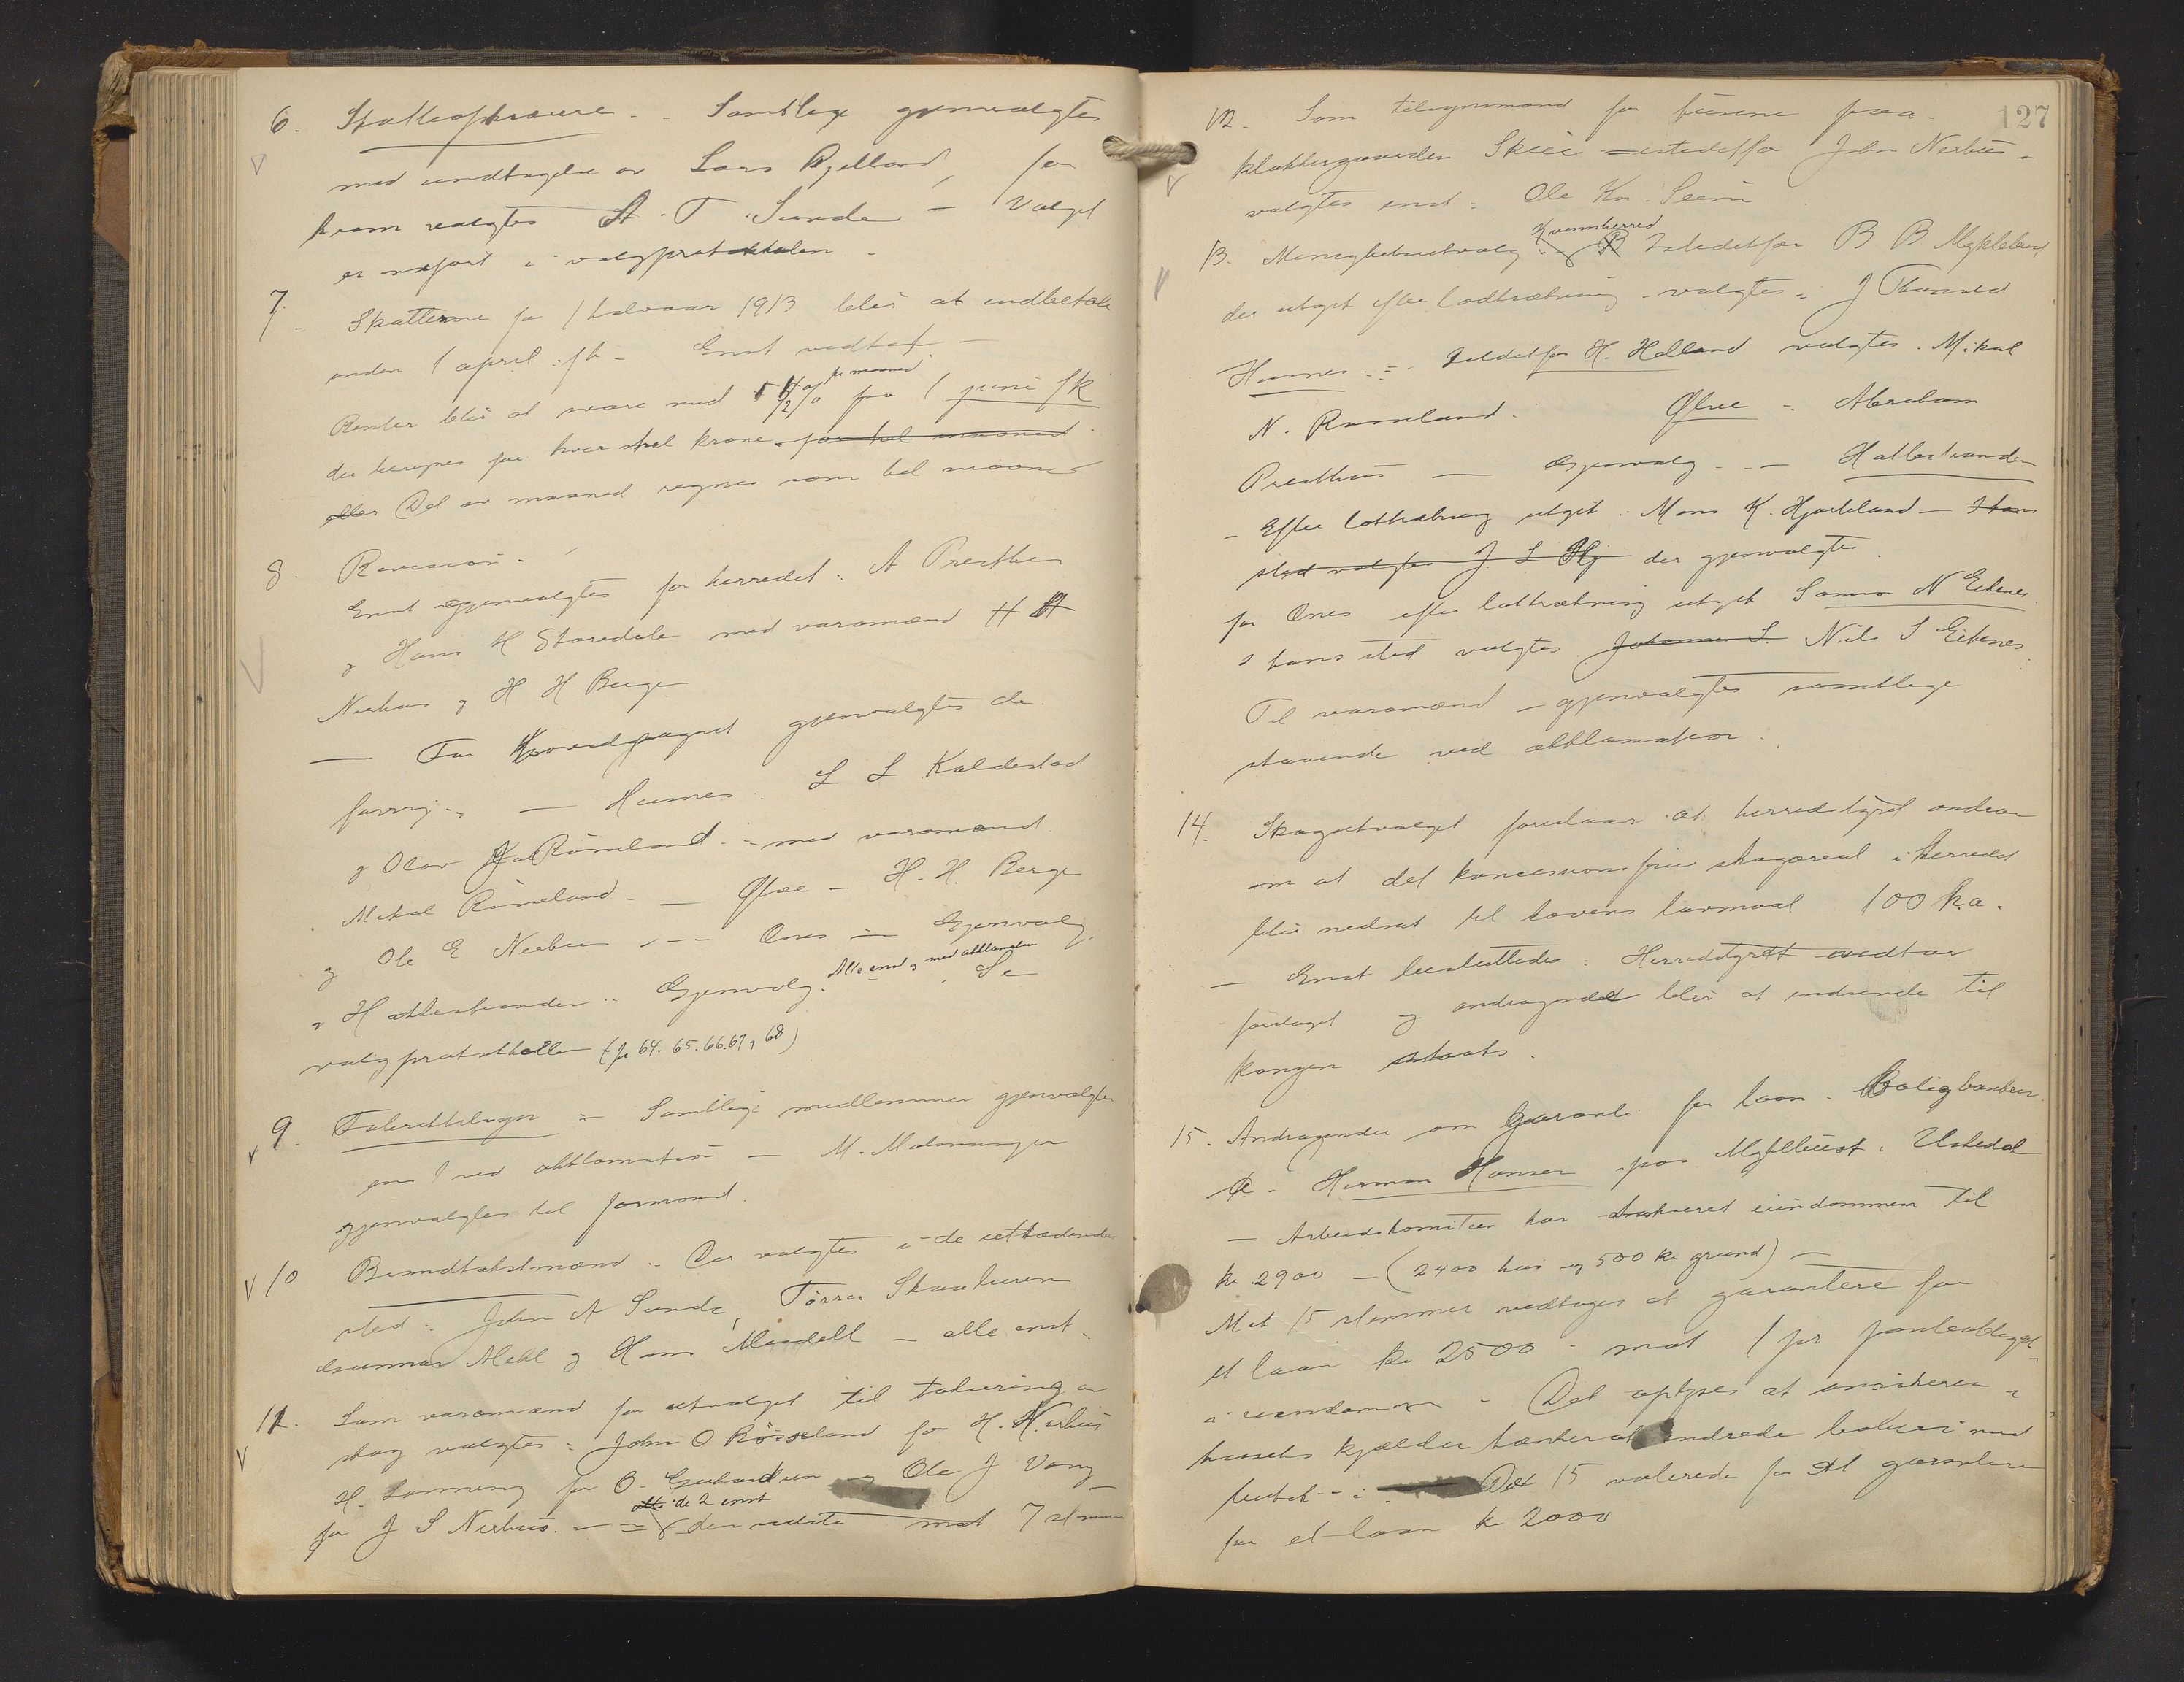 6. Skatteopkrævere - Samtlige gjenvalgtes
med undtagelse av Lars Gjelland, for
ham valgtes A. T. Sunde - Valget
er indført i valgprotokollen.
7. Skatterne for 1 halvaar 1913 blir at indbetale
inden 1 april f.k. - Enst vedtat -
pr maaned
Renter blir at svare med 1/2 % fra 1 juni f k
der beregnes for hver hel krone - for hel maaned
eller Del av maaned regnes som hel maaned
8. Revision.
Enst gjenvalgtes for herredet: A Presthus
og Hans H Storedale med varamænd H H
Nerhus og H H Berge
- For Hovedsognet gjenvalgtes de
forrige - Husnes: L L Kaldestad
og Olav J Røuseland - med varamænd
Mikal Røiseland. - Ølve - H. H. Berge
og Ole E Nerhus - Onæs - Gjenvalg
Alle enst og med akklamation
og Hatlestranden - Gjenvalg. Se
valgprotokollen (fo 64. 65. 66. 67 og 68)
9. Faterettilsyn = Samtlige medlemmer gjenvalgtes
enst ved akklamation - M. Malmanger
gjenvalgtes til formand.
10 Brandtakstmænd. Der valgtes i de uttrædendes
sted: John A Sunde, Tørres Skaaluren
Gunnar Mehl og Hans Mundell - alle enst.
11. Som varamænd for utvalget til taksering av
skog valgtes: John O Røsseland for H. Nerhus
H. Lønning for O. Gerhardsen og Ole J Vang
alle de 2 enst
for J S Nerhus. - den sidste mot 7 stemmer
127
12. Som tilsynsmand for husene paa
klokkergaarden Skeie istedetfor John Nerhus -
valgtes enst: Ole Kn. Seim
Kvinnherred
13. Menighetsutvalg - B Istedetfor B B Myklebust
der utgik efter lodtrækning - valgtes: J Tharald
Husnes: Istedetfor H. Helland valgtes Mikal
N. Røiseland. Ølve - Abraham
Presthus - Gjenvalg - Hatlestranden
- Efter lottrækning utgik: Mons K. Hjorteland - I hans
sted valgtes J. L Hj der gjenvalgtes.
for Onæs efter lottrækning utgik Samson N Eikenes.
I hans sted valgtes Johannes S Nils S Eikenes
Til varamænd - gjenvalgtes samtlige
staaende ved akklamation.
14. Skogutvalget foreslaar at herredstyret andrar
om at det koncessionsfrie skogareal i herredet
blir nedsat til lovens lavmaal 100 ha.
- Enst besluttedes: Herredstyret vedtar
forslaget og andragendet blir at indsende til
kongen straks.
15. Andragender om garanti for laan i Boligbanken.
a. Herman Hansen paa Myklebust i Uskedal
- Arbeidskomiteen har takseret eiendommen til
kr. 2900 - (2400 hus og 500 kr grund) -
Mot 15 stemmer vedtoges at garantere for
et laan kr 2500 - mot 1 pr panteobligation
i eiendommen. Det oplyses at ansøkeren i
husets kjælder tænker at indrede bakeri med
butik - De 15 voterede for at garantere
for et laan kr 2000